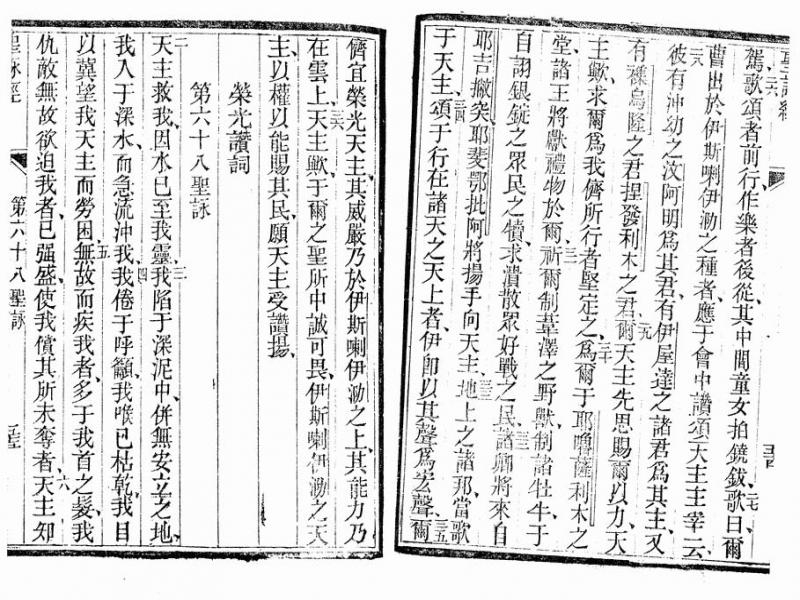 聖詠經
駕歌頌者前行作樂者後從其中間童女拍鐃鈸歌曰二七爾
曹出於伊斯喇伊泐之種者應于會中讚頌天主主宰二八云
彼有沖幼之汶阿明爲其君有伊屋達之諸君爲其主又
有襍烏隆之君捏發利木之君二九爾天主先思賜爾以力天
主歟求爾爲我儕所行者堅定之三十爲爾于耶嚕薩利木之
堂諸王將獻禮物於爾三一祈爾制葦澤之野獸制諸牡牛于
自詡銀錠之眾民之犢求潰散眾好戰之民三二諸卿將來自
耶吉撇突耶斐鄂批阿將揚手向天主三三地上之諸邦當歌
于天主頌于三四行在諸天之天上者伊卽以其聲爲宏聲三五爾
儕宜榮光天主其威嚴乃於伊斯喇伊泐之上其能力乃
在雲上三六天主歟于爾之聖所中誠可畏伊斯喇伊泐之天
主以權以能賜其民願天主受讚揚
榮光讚詞
第六十八聖詠
二天主救我因水已至我靈三我陷于深泥中併無安立之地
我入于深水而急流沖我四我倦于呼籲我喉已枯乾我目
以冀望我天主而勞困五無故而疾我者多于我首之髮我
仇敵無故欲迫我者已强盛使我償其所未奪者六天主知
聖詠經
第六十八聖詠